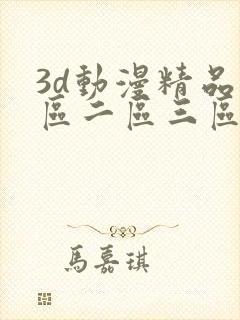 3d動漫精品
區二區三區
馬嘉琪